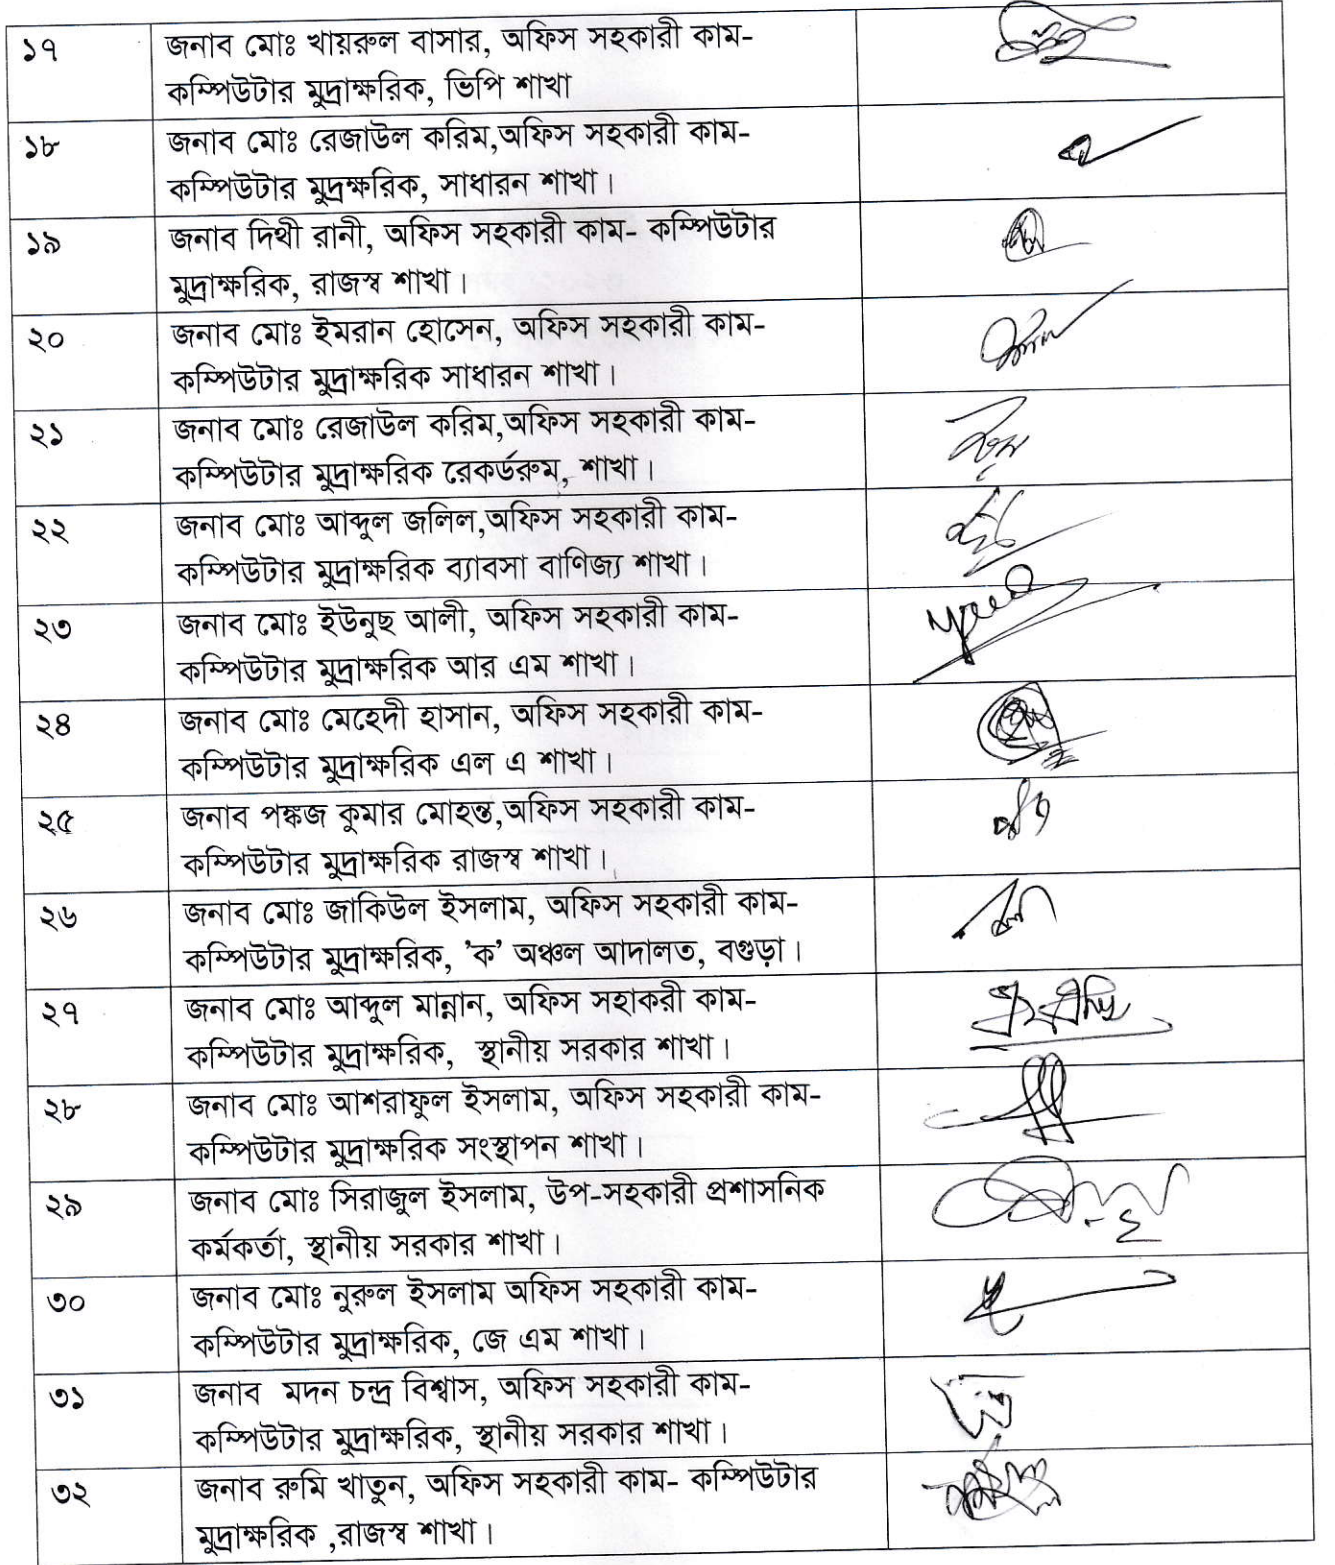 ১৭ জনাব মোঃ খায়রুল বাসার, অফিস সহকারী কাম-
কম্পিউটার মুদ্রাক্ষরিক, ভিপি শাখা
১৮ জনাব মোঃ রেজাউল করিম,অফিস সহকারী কাম-
কম্পিউটার মুদ্রক্ষরিক, সাধারন শাখা।
১৯ জনাব দিথী রানী, অফিস সহকারী কাম- কম্পিউটার
মুদ্রাক্ষরিক, রাজস্ব শাখা।
২০ জনাব মোঃ ইমরান হোসেন, অফিস সহকারী কাম-
কম্পিউটার মুদ্রাক্ষরিক সাধারন শাখা।
২১ জনাব মোঃ রেজাউল করিম,অফিস সহকারী কাম-
কম্পিউটার মুদ্রাক্ষরিক রেকর্ডরুম, শাখা।
২২ জনাব মোঃ আব্দুল জলিল,অফিস সহকারী কাম-
কম্পিউটার মুদ্রাক্ষরিক ব্যাবসা বাণিজ্য শাখা।
২৩ জনাব মোঃ ইউনুছ আলী, অফিস সহকারী কাম-
কম্পিউটার মুদ্রাক্ষরিক আর এম শাখা।
২৪ জনাব মোঃ মেহেদী হাসান, অফিস সহকারী কাম-
কম্পিউটার মুদ্রাক্ষরিক এল এ শাখা।
২৫ জনাব পঙ্কজ কুমার মোহন্ত,অফিস সহকারী কাম-
কম্পিউটার মুদ্রাক্ষরিক রাজস্ব শাখা।
২৬ জনাব মোঃ জাকিউল ইসলাম, অফিস সহকারী কাম-
কম্পিউটার মুদ্রাক্ষরিক, 'ক' অঞ্চল আদালত, বগুড়া।
২৭ জনাব মোঃ আব্দুল মান্নান, অফিস সহাকরী কাম-
কম্পিউটার মুদ্রাক্ষরিক, স্থানীয় সরকার শাখা।
২৮ জনাব মোঃ আশরাফুল ইসলাম, অফিস সহকারী কাম-
কম্পিউটার মুদ্রাক্ষরিক সংস্থাপন শাখা।
২৯ জনাব মোঃ সিরাজুল ইসলাম, উপ-সহকারী প্রশাসনিক
কর্মকর্তা, স্থানীয় সরকার শাখা।
৩০ জনাব মোঃ নুরুল ইসলাম অফিস সহকারী কাম-
কম্পিউটার মুদ্রাক্ষরিক, জে এম শাখা।
৩১ জনাব মদন চন্দ্র বিশ্বাস, অফিস সহকারী কাম-
কম্পিউটার মুদ্রাক্ষরিক, স্থানীয় সরকার শাখা।
৩২ জনাব রুমি খাতুন, অফিস সহকারী কাম- কম্পিউটার
মুদ্রাক্ষরিক ,রাজস্ব শাখা।